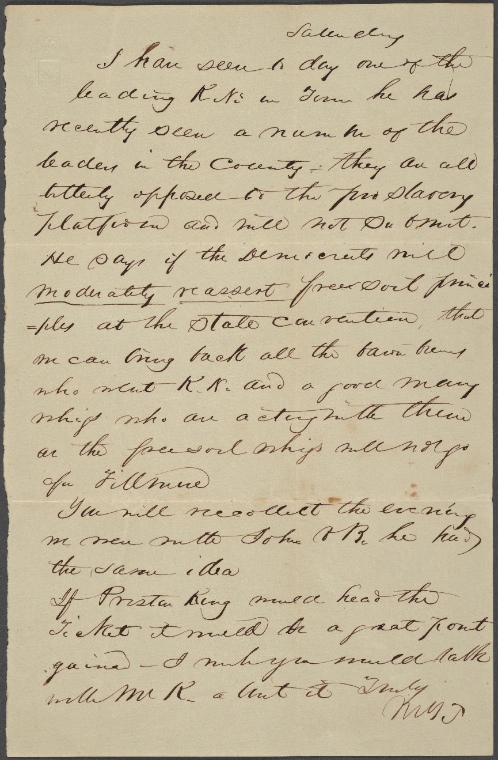 Saturday
I have seen to day one of the
leading K.N's in Town he has
recently seen a number of the
leaders in the County - they are all
bitterly opposed to the pro slavery
Platform and will not submit.
He says if the Democrats will
moderately reassert free soil princi
=ples at the State convention, that
we can bring back all the barn burners
who went K.N. and a good many
whigs who are acting with them
as the free soil whigs will not go
for Fillmore
You will recollect the evening
we were with John V B. he had
the same idea
If Preston King would head the
Ticket it would be a great point
gained - I wish you would talk
with Mr K. about it Truly